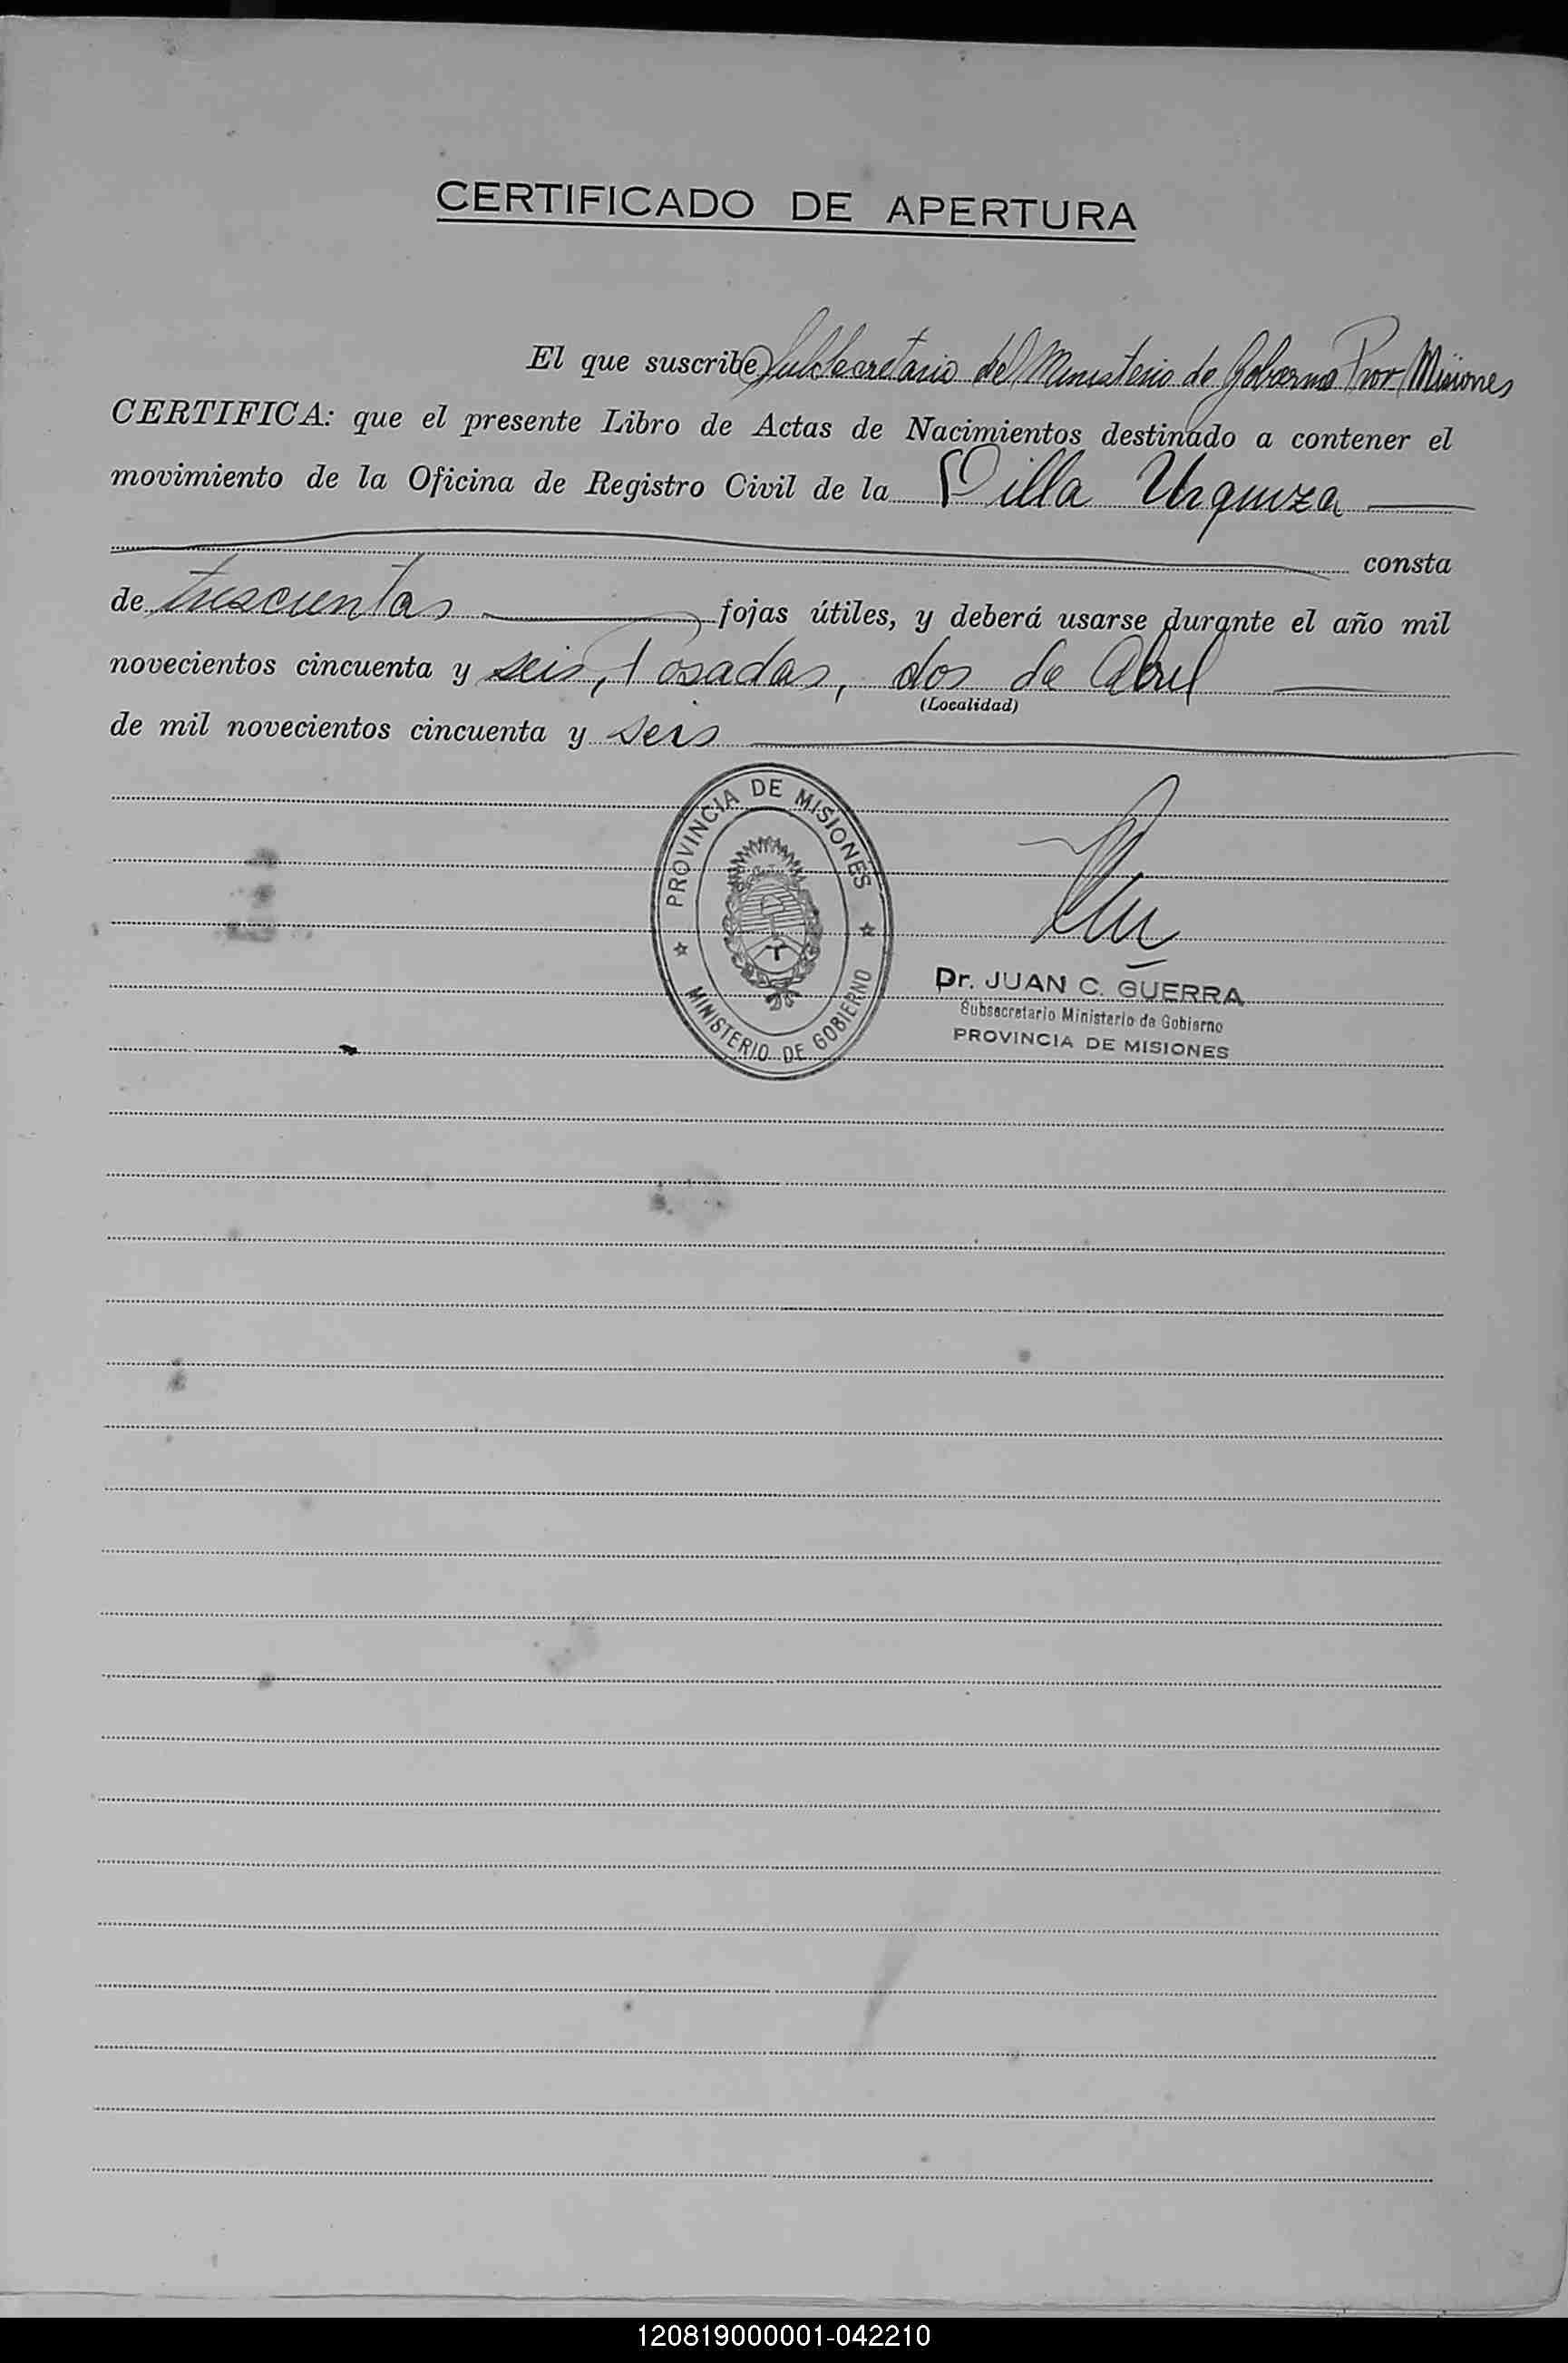 CERTIFICADO DE APERTURA
El que suscribe Subsecretario del Ministerio de Gobierno Prov Misiones
CERTIFICA: que el presente Libro de Actas de Nacimientos destinado a contener el
movimiento de la Oficina de Registro Civil de la Villa Urquiza
consta
de trescientas fojas útiles, y deberá usarse durante el año mil
novecientos cincuenta y seis, Posadas, dos de Abril
(Localidad)
de mil novecientos cincuenta y seis
PROVINCIA DE MISIONES
MINISTERIO DE GOBIERNO
Dr. JUAN C. GUERRA
Subsecretario Ministerio de Gobierno
PROVINCIA DE MISIONES
120819000001-042210